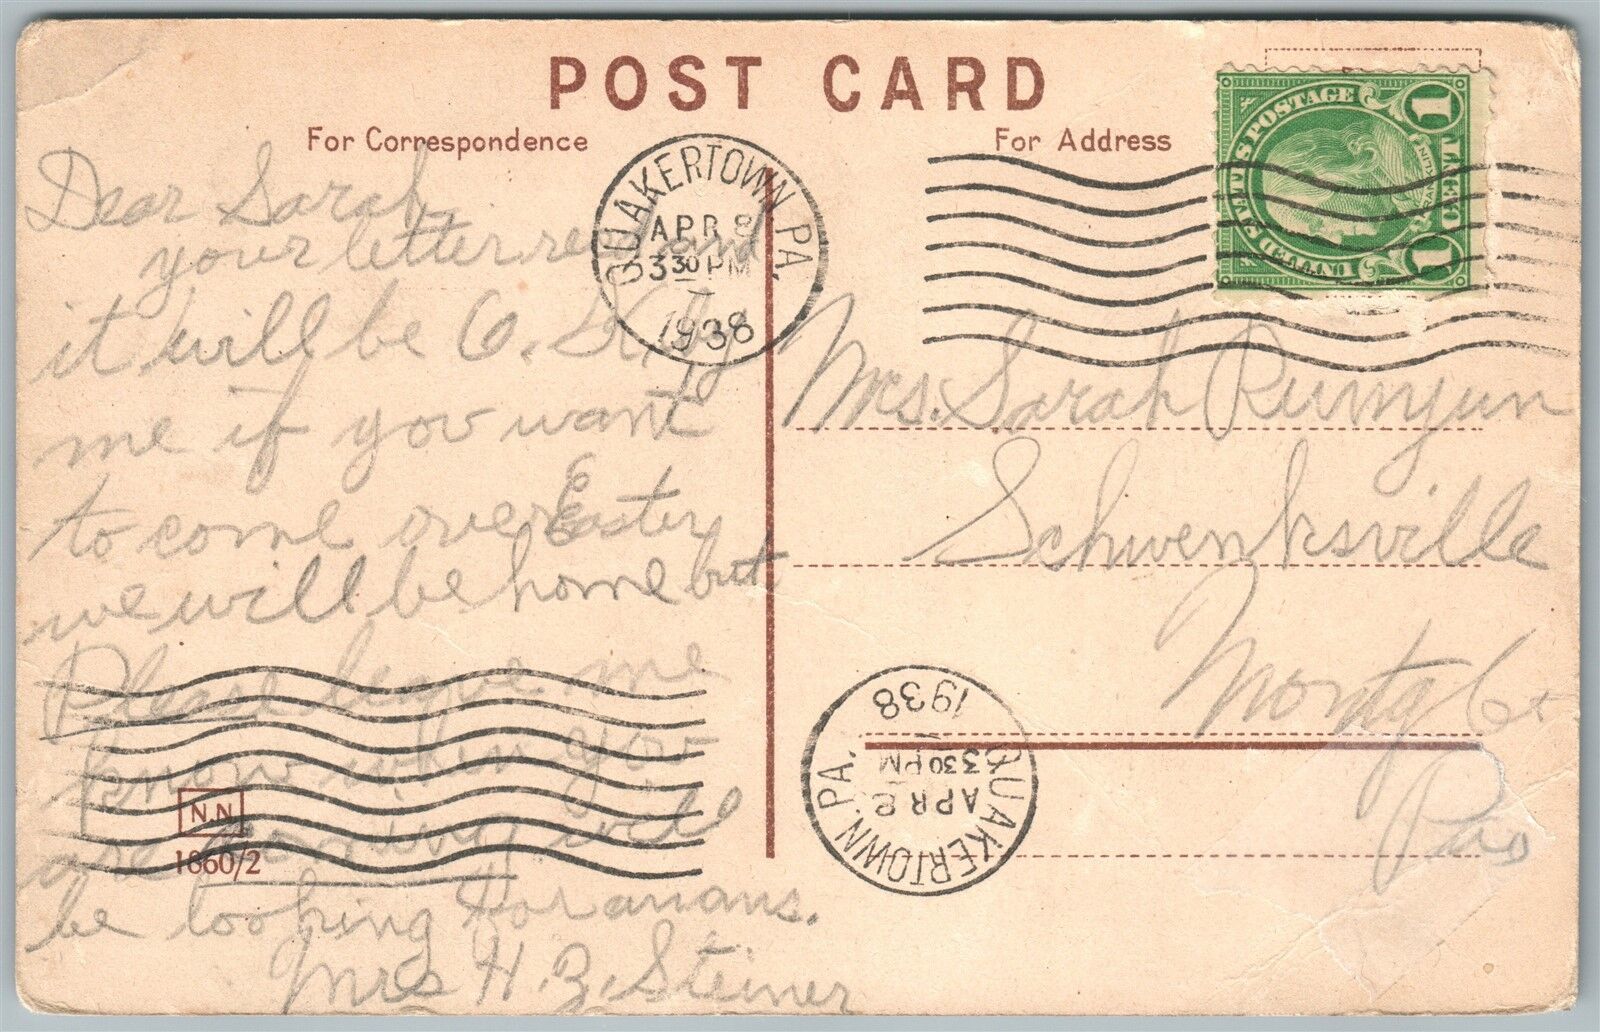 POST CARD
For Correspondence
For Address
QUAKERTOWN, PA.
APR 8
330 PM
1938
UNITED STATES POSTAGE
1 CENT 1
Dear Sarah,
your letter rec and
it will be O. K. by
me if you want
to come over Easter
we will be home but
Please leave me
know when you
are coming will
be looking for
Mrs H. B. Steiner
Mrs. Sarah Rumyun
Schwenksville
Montg Co
Pa
N.N
1860/2
QUAKERTOWN, PA.
APR 8
330 PM
1938